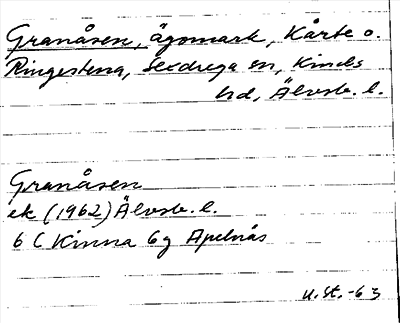 Granåsen, ägomark, Kårte o.
Ringestena, Sexdrega sn, Kinds
hd, Älvsb. l.
Granåsen
ek (1962) Älvsb. l.
6 C Kinna 6g Apelnäs
U. St. -63